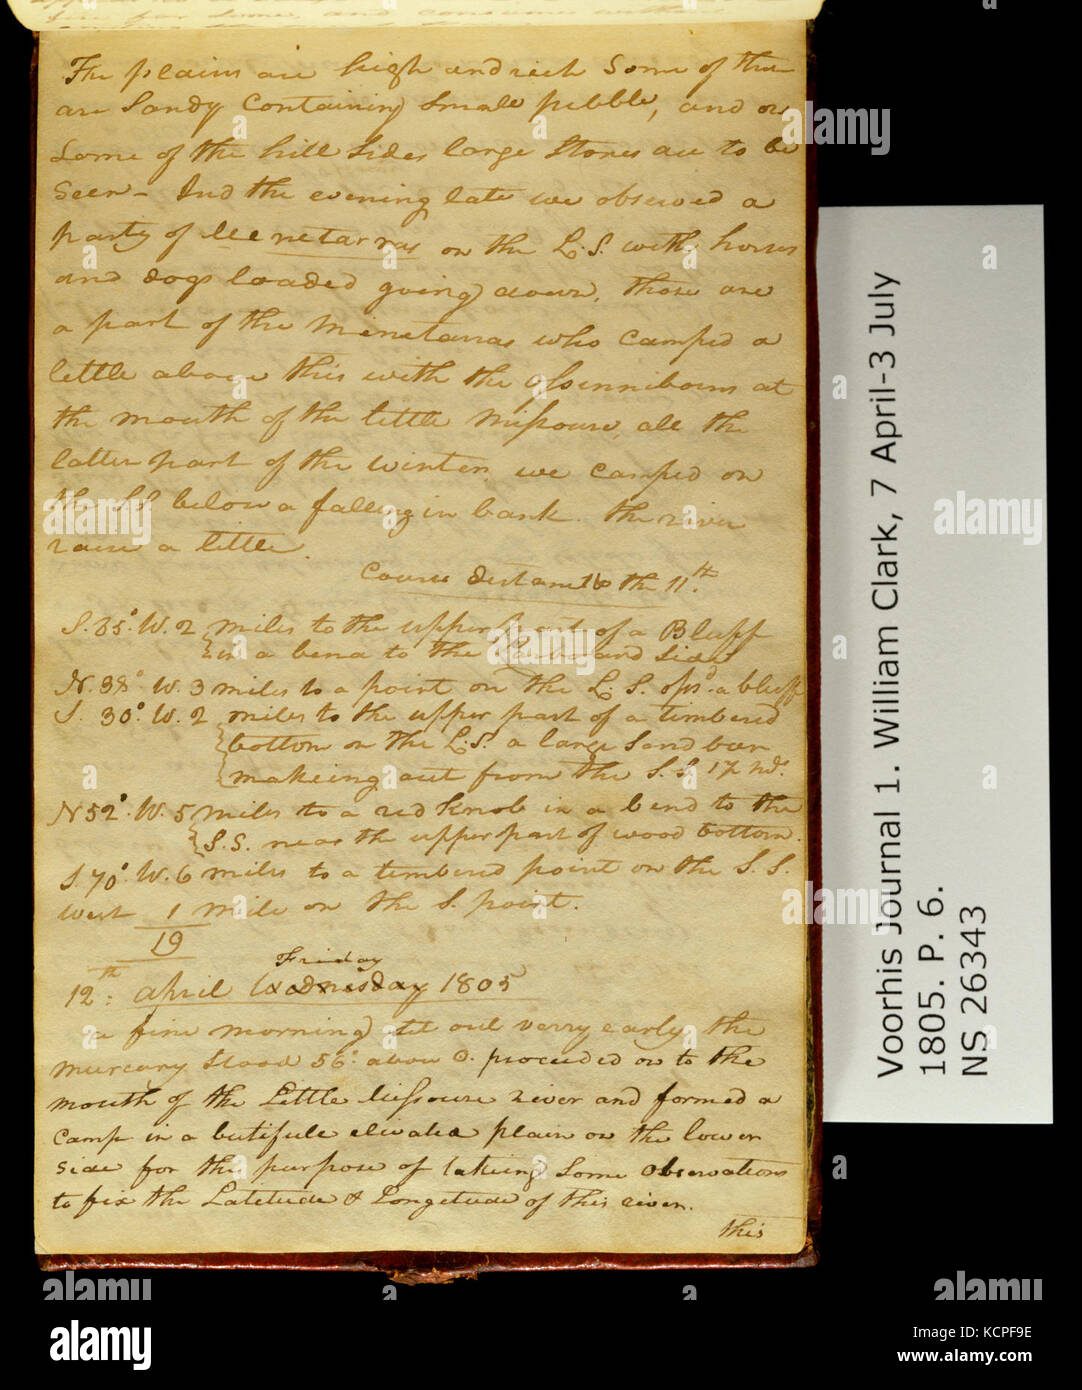 The plains are high and rich Some of them
are Sandy Containing Small pebble, and on
Some of the hill Sides large Stones are to be
Seen— In the evening late we observed a
party of Me ne tar ras on the L. S. with horses
and dogs loaded going down, those are
a part of the Minetarras who camped a
little above this with the Ossinniboins at
the mouth of the little Missouri, all the
latter part of the winter we camped on
the S.S. below a falling in bank. the river
raise a little.
Course distance to the 11th.
S. 35°. W. 2 miles to the upper part of a Bluff
in a bend to the Larboard Side
N. 38° W. 3 miles to a point on the L. S. opsd. a bluff
S. 30°. W. 2 miles to the upper part of a timbered
bottom on the L.S. a large Sand bar
makeing out from the S.S. 1½ Mds.
N 52°. W. 5 miles to a red Knob in a bend to the
S.S. near the upper part of wood bottom.
S. 70°. W. 6 miles to a timbered point on the S. S.
west 1 mile on the S. point.
19
Friday
12th: April Wednesday 1805
a fine morning Set out verry early, the
murcury Stood 56° above 0. proceeded on to the
mouth of the Little Missoure river and formed a
Camp in a butifule elivated plain on the lower
Side for the purpose of takeing Some Observations
to fix the Latitude & Longitude of this river.
this
Voorhis Journal 1. William Clark, 7 April-3 July
1805. P. 6.
NS 26343
alamy
Image ID: KCPF9E
www.alamy.com